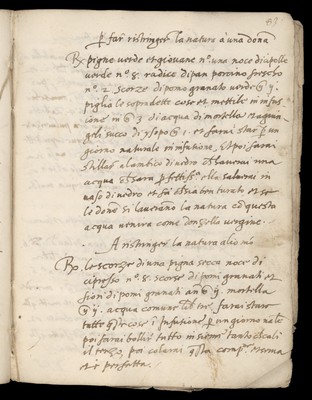 83
p far ristringer la natura à una dona
℞ pigne verde et giovane nº. una noce di cipresso
verde nº. 8. radice di pan porcino fresco
nº. 2. scorze di pomo granato verde
piglia le sopradette cose et mettile in infu
sione in 3 di acqua di mortella et aqua
succo di ysopo 1. et farai star p un
giorno naturale in infusione, et poi farai
stillar a lambico di vedro
acqua sara et la salverai in
vaso di vedro et ben turato et se
le done si laverano la natura co questa
acqua venira come donzella vergine.
A ristringer la natura alio mo
℞. le scorze di una pigna secca noce di
cipresso nº. 8. scorze di pomi granati et
fiori di pomi granati an mortella
acqua comune farai stare
tutte cose i infusione p un giorno nale
poi farai bollir tutto insieme tanto che cali
il terzo, poi colarai
et e perfetta.